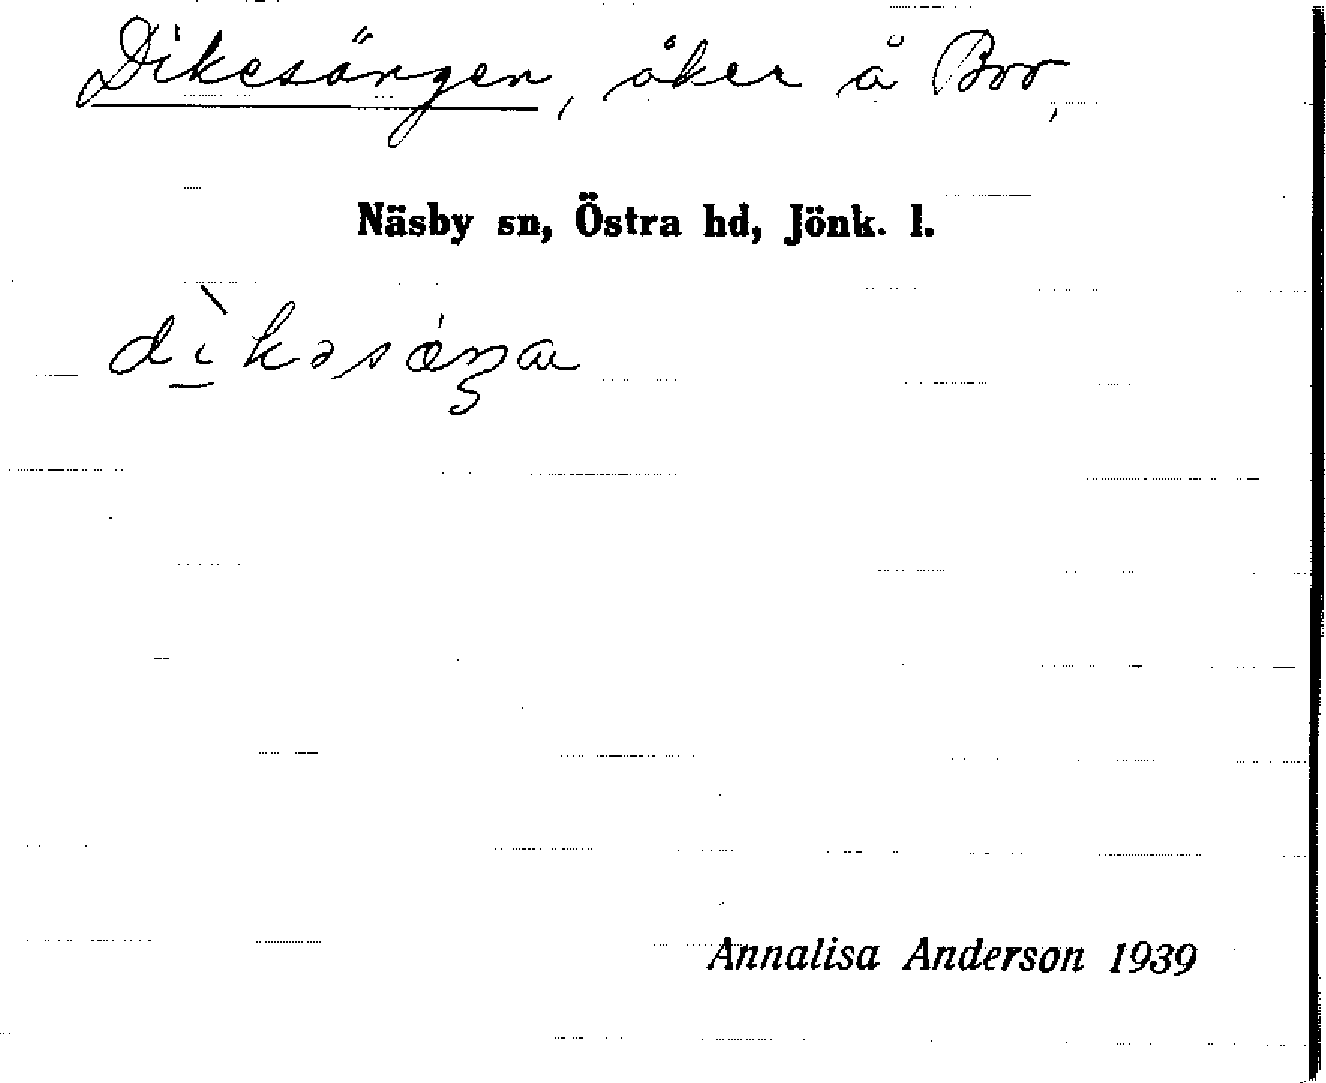 Dikesängen, åker å Bro,
Näsby sn, Östra hd, Jönk. l.
dìkəsǽŋa
Annalisa Anderson 1939